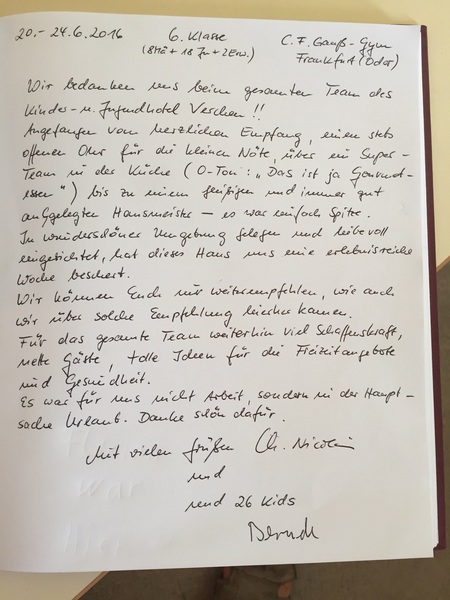 20.- 24.6.2016 6. Klasse C. F. Gauß-Gym
(8Mä + 18 Ju + 2Erw.) Frankfurt (Oder)
Wir bedanken uns beim gesamten Team des
Kinder- u. Jugendhotel Verchen !!
Angefangen vom herzlichen Empfang, einem stets
offenen Ohr für die kleinen Nöte, über ein Super-
Team in der Küche (O-Ton: „Das ist ja Gourmet-
essen“) bis zu einem fleißigen und immer gut
aufgelegten Hausmeister – es war einfach Spitze.
In wunderschöner Umgebung gelegen und liebevoll
eingerichtet, hat dieses Haus uns eine erlebnisreiche
Woche beschert.
Wir können Euch nur weiterempfehlen, wie auch
wir über solche Empfehlung hierher kamen.
Für das gesamte Team weiterhin viel Schaffenskraft,
nette Gäste, tolle Ideen für die Freizeitangebote
und Gesundheit.
Es war für uns nicht Arbeit, sondern in der Haupt-
sache Urlaub. Danke schön dafür.
Mit vielen Grüßen Ch.
und
und 26 Kids